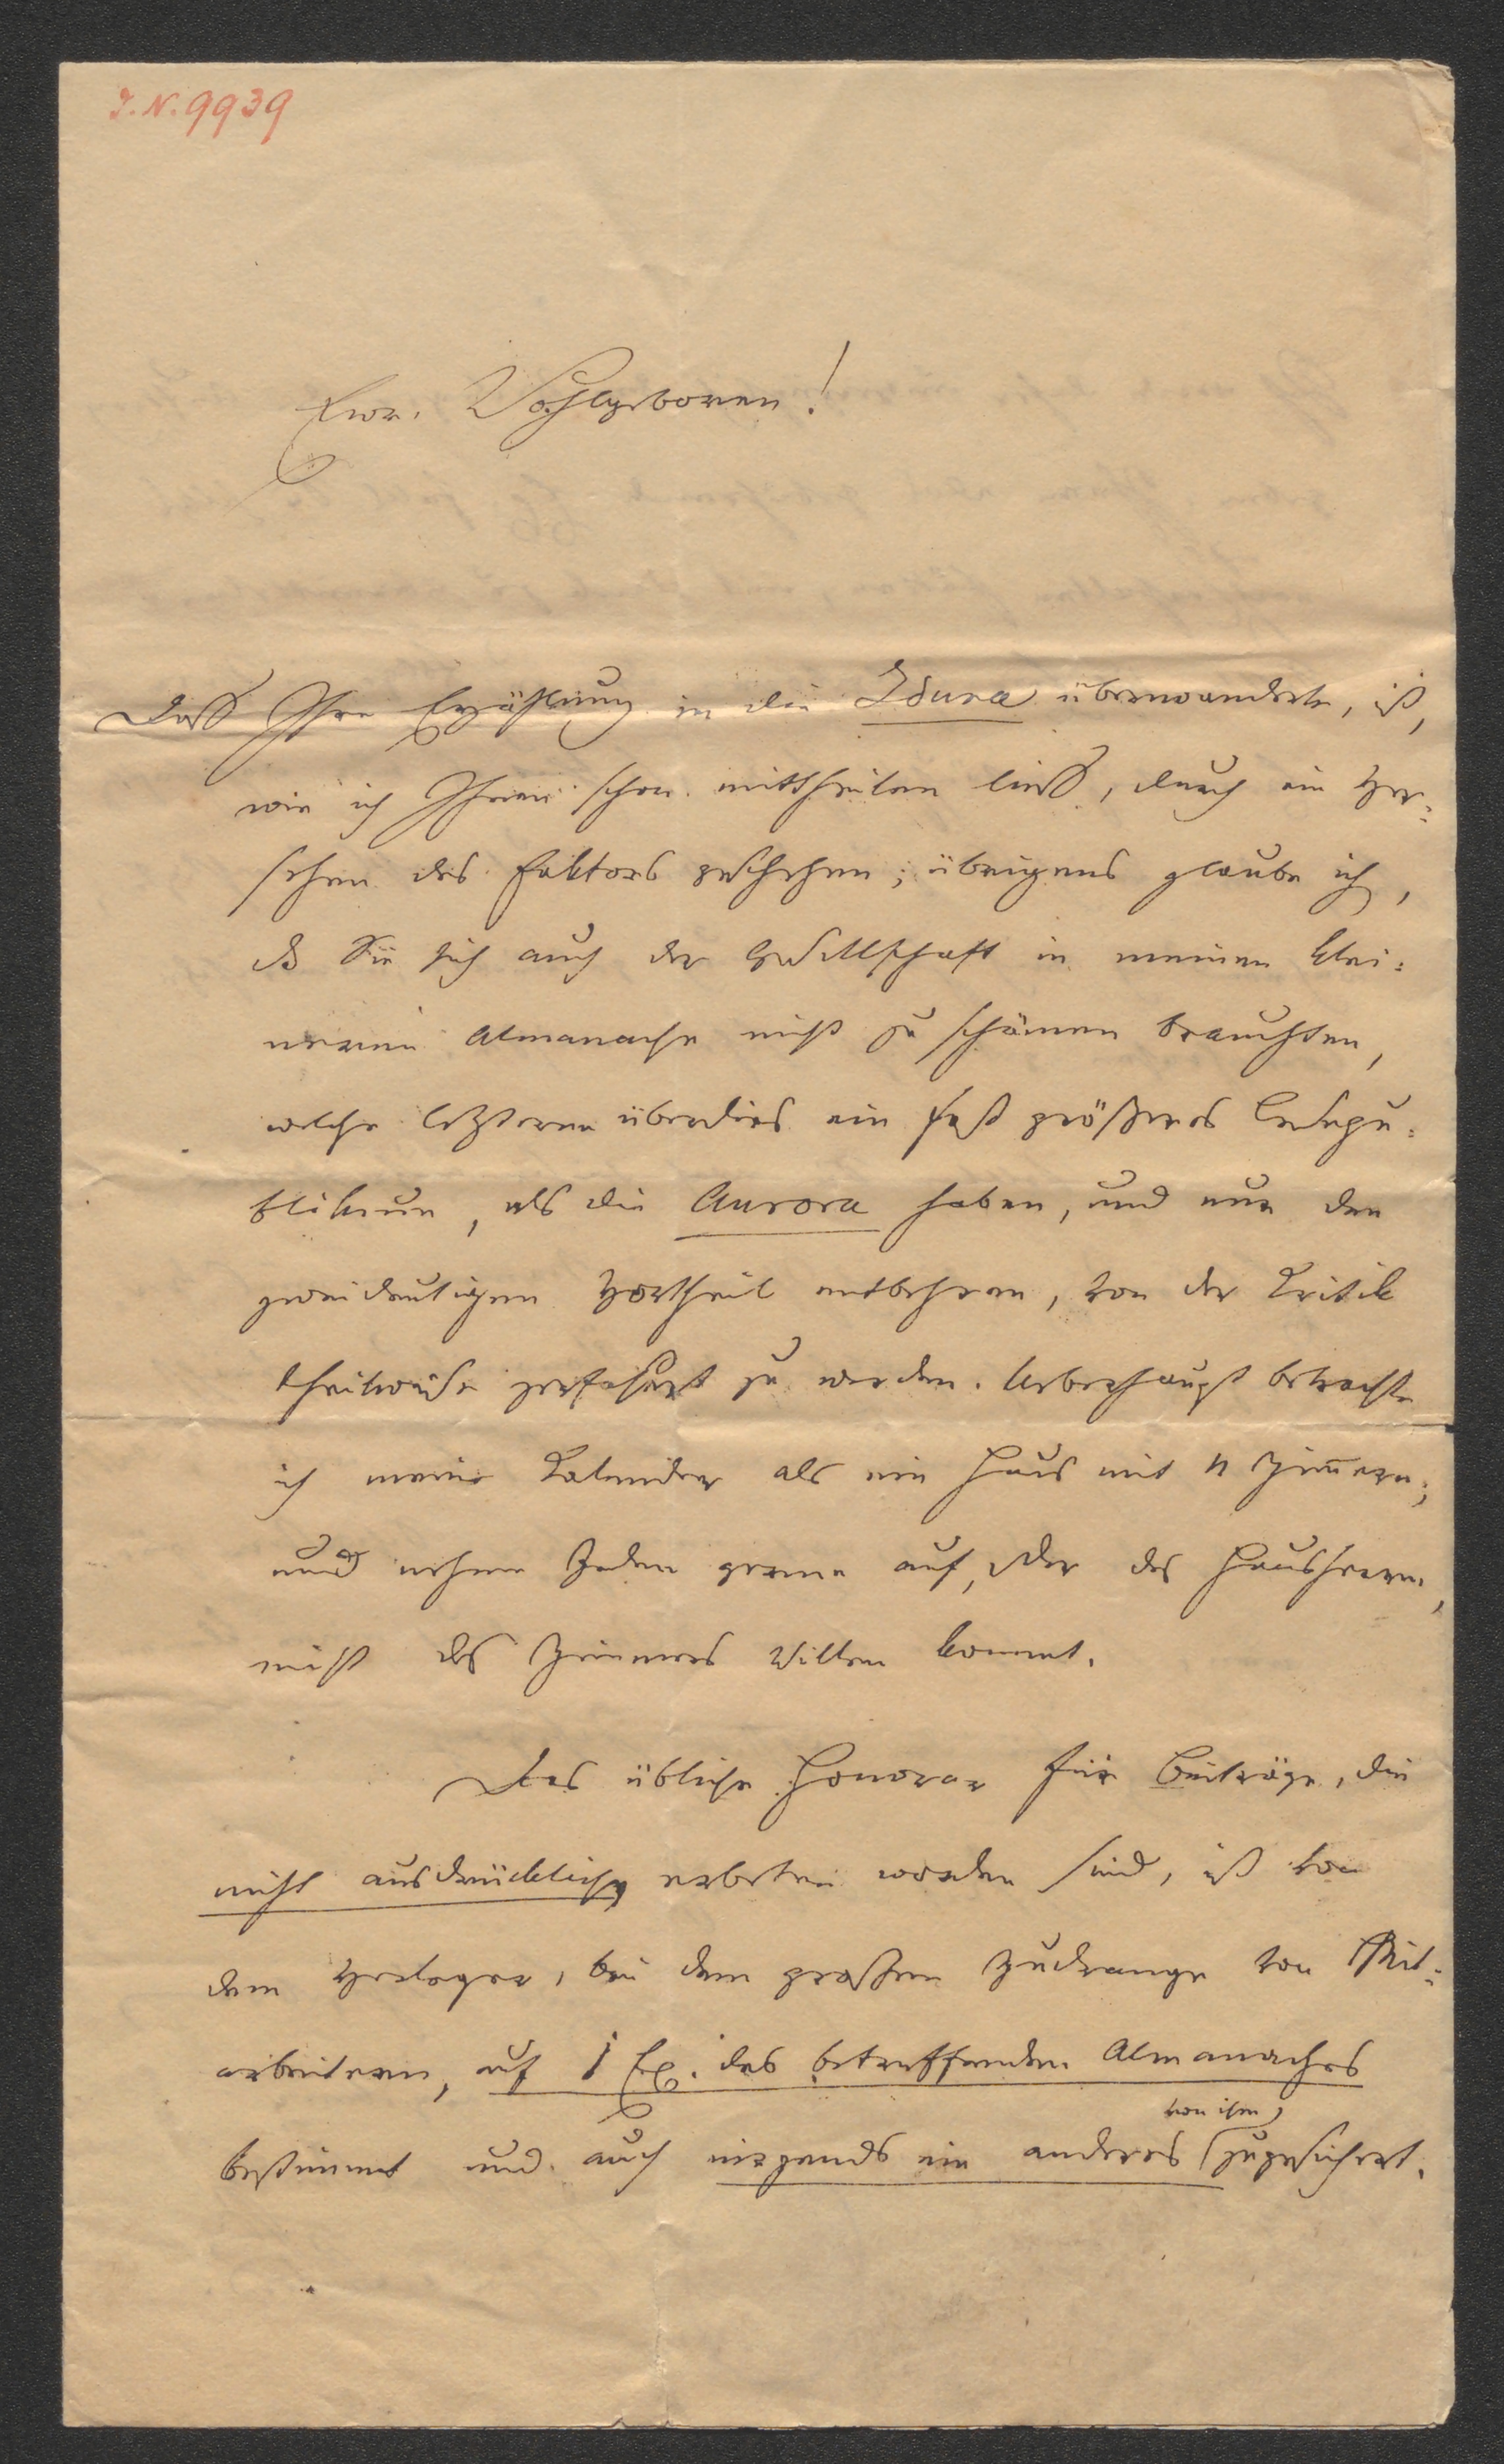 I. N. 9939
Euer. Wohlgeboren!
Daß Ihre Erzählung in die Iduna überwanderte, ist,
wie ich Ihnen schon mittheilen ließ, durch ein Ver=
sehen des Faktors geschehen; übrigens glaube ich,
daß Sie sich auch der Gesellschaft in meinen klei=
neren Almanache nicht zu schämen brauchten,
welche letzteren überdies ein fast größeres Lesepu=
blikum, als die Aurora haben, und nur den
zweideutigen Vortheil entbehren, von der Kritik
theilweise zerfasert zu werden. Ueberhaupt betrachte
ich meine Kalender als ein Haus mit 4 Zimmern;
und nehme Jeden gerne auf, der des Hausherrn,
nicht des Zimmers Willen kommt.
Das übliche Honorar für Beiträge, die
nicht ausdrücklich erbeten worden sind, ist von
dem Verleger, bei dem großen Zudrange von Mit=
arbeitern, auf 1 Ex. des betreffenden Almanaches
von ihm
bestimmt und auch nirgends ein anderes zugesichert.